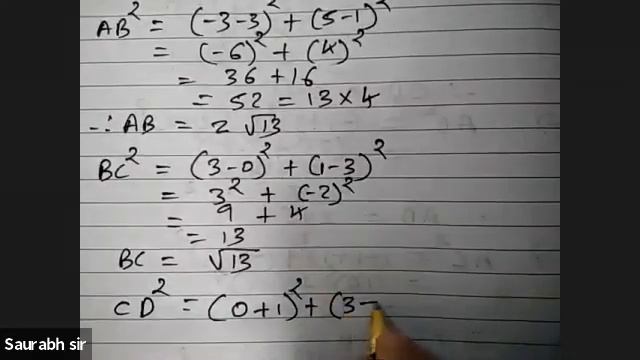 AB² = (-3-3)² + (5-1)²
= (-6)² + (4)²
= 36 + 16
= 52 = 13 × 4
∴ AB = 2 √13
BC² = (3-0)² + (1-3)²
= 3² + (-2)²
= 9 + 4
= 13
BC = √13
CD² = (0+1)² + (3-
Saurabh sir